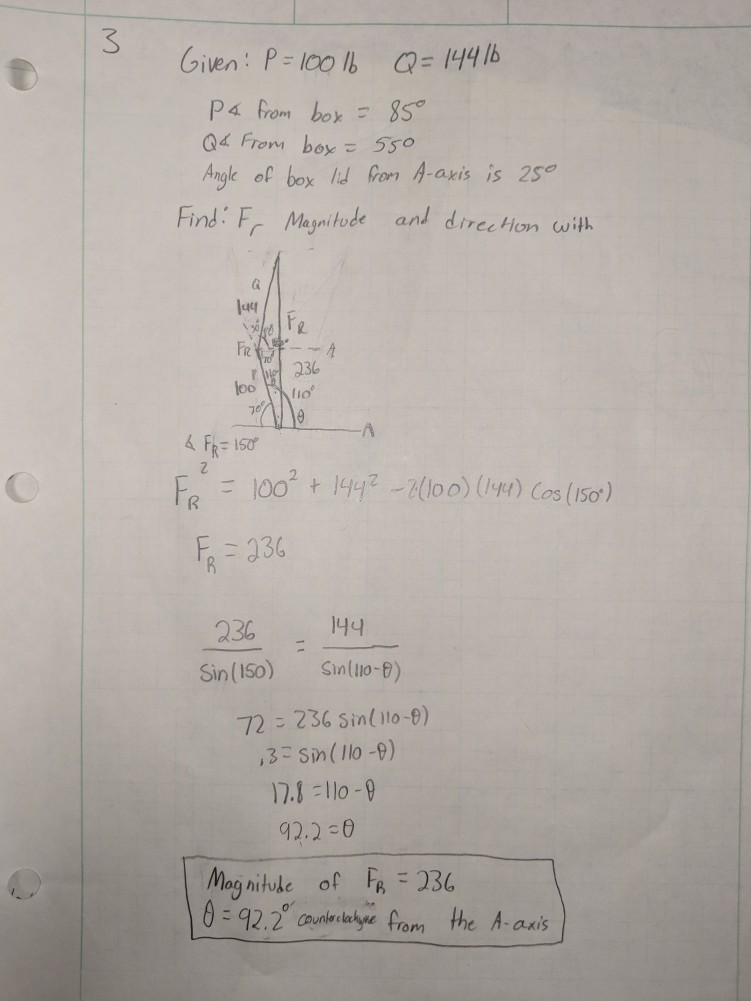 3
Given: P = 100 lb Q = 144 lb
P∡ from box = 85°
Q∡ From box = 55°
Angle of box lid from A-axis is 25°
Find: Fr Magnitude and direction with
Q
144
FR
30°
FR
A
70°
236
P
100
110°
70°
θ
A
∡ FR = 150°
FR² = 100² + 144² - 2(100)(144) Cos(150°)
FR = 236
236/Sin(150) = 144/Sin(110-θ)
72 = 236 Sin(110-θ)
.3 = Sin(110-θ)
17.8 = 110-θ
92.2 = θ
Magnitude of FR = 236
θ = 92.2° counterclockwise from the A-axis